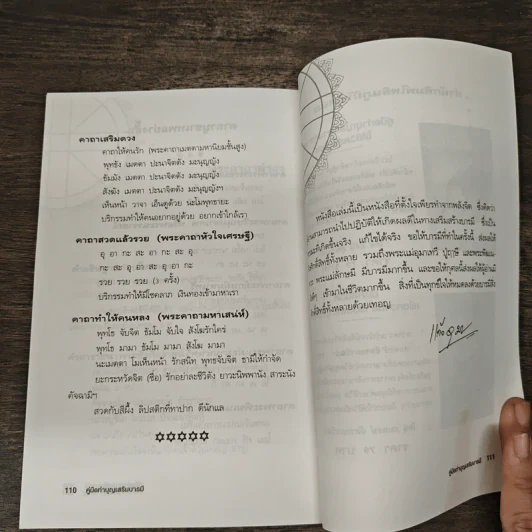 คาถาเสริมดวง
คาถาให้คนรัก (พระคาถาเมตตามหานิยมชั้นสูง)
พุทธัง เมตตา ปะนาจิตตัง มะนุญญัง
ธัมมัง เมตตา ปะนาจิตตัง มะนุญญัง
สังฆัง เมตตา ปะนาจิตตัง มะนุญญังฯ
เห็นหน้า วาจา เอ็นดูด้วย นะโมพุทธายะ
บริกรรมทำให้คนอยากอยู่ด้วย อยากเข้าใกล้เรา
คาถาสวดแล้วรวย (พระคาถาหัวใจเศรษฐี)
อุ อา กะ สะ อา กะ สะ อุ
กะ สะ อุ อา สะ อุ อา กะ
รวย รวย รวย (๖ ครั้ง)
บริกรรมทำให้มีโชคลาภ เงินทองเข้ามาหาเรา
คาถาทำให้คนหลง (พระคาถามหาเสน่ห์)
พุทโธ จับจิต ธัมโม จับใจ สังโฆรักใคร่
พุทโธ มามา ธัมโม มามา สังโฆ มามา
นะเมตตา โมเห็นหน้า รักสนิท พุทธจับจิต ธามิให้กำจัด
ยะกระหวัดจิต (ชื่อ) รักอย่าละชีวิตัง ยาวะนิพพานัง สาระนัง
คัจฉามิฯ
สวดกับสีผึ้ง ลิปสติกที่ทาปาก ดีนักแล
110 คู่มือทำบุญเสริมบารมี
หนังสือเล่มนี้เป็นหนังสือที่ตั้งใจเพียรทำจากพลังจิต ซึ่งคิดว่า
สามารถนำไปปฏิบัติให้เกิดผลดีในทางเสริมสร้างบารมี ซึ่งเป็น
ที่เกิดขึ้นจริง แก้ไขได้จริง ขอให้บารมีที่ทำในครั้งนี้ ส่งผลให้
ศักดิ์สิทธิ์ทั้งหลาย รวมถึงพระแม่อุมาเทวี ปู่ฤๅษี และพระพิฆเนศ
พระแม่ลักษมี มีบารมีมากขึ้น และขอให้กุศลนี้ส่งผลให้ผู้อ่านมี
เข้ามาในชีวิตมากขึ้น สิ่งที่เป็นทุกข์ใจให้หมดลงด้วยบารมีสิ่ง
ศักดิ์สิทธิ์ทั้งหลายด้วยเทอญ
คู่มือทำบุญเสริมบารมี 111